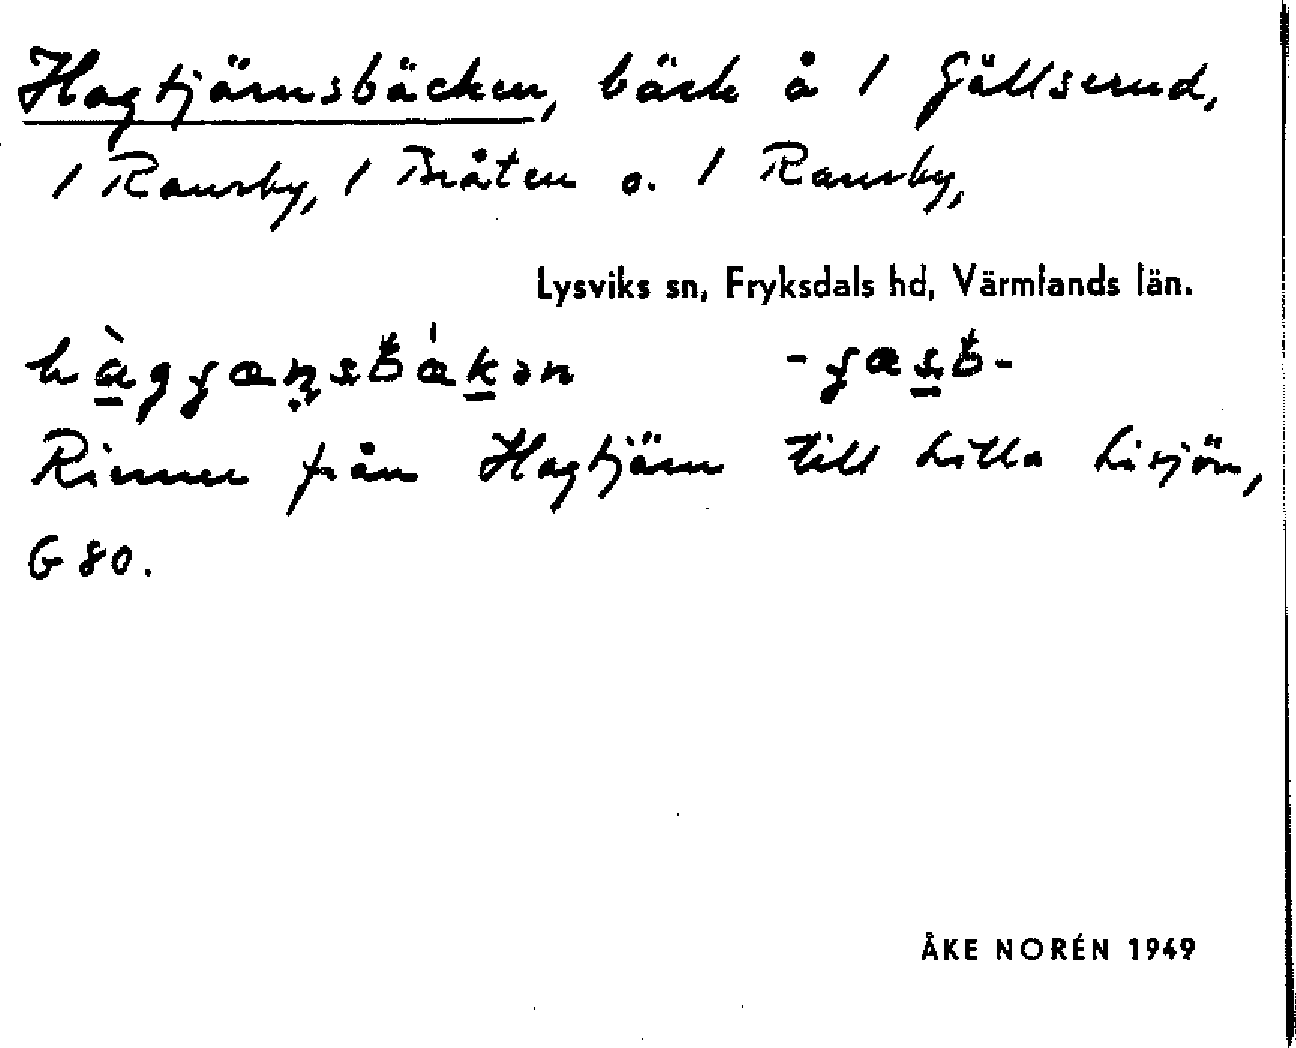 Hagtjärnsbäcken, bäck å 1 Gällserud,
1 Ransby, 1 Bråten o. 1 Ransby,
Lysviks sn, Fryksdals hd, Värmlands län.
Rinner från Hagtjärn till Lilla Lisjön,
G 80.
ÅKE NORÉN 1949